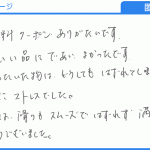 ージ
料クーポン ありがたいです
いい品にであい よかったです
いたい物は どうしても はずれてしま
ストレスでした。
滑りも スムーズで はずれず 満
うございました。